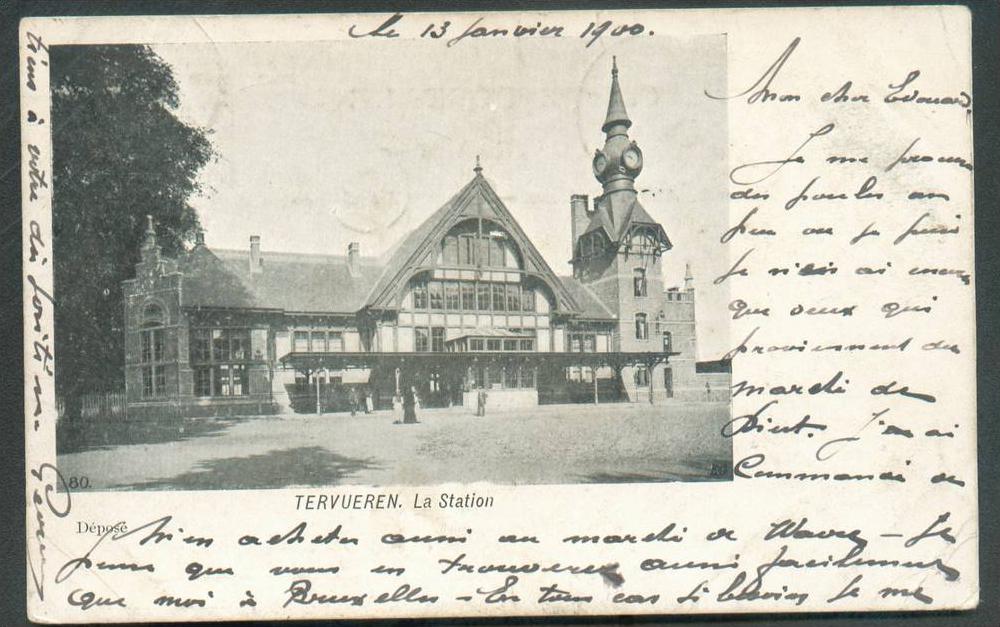 Le 13 Janvier 1900.
Mon cher Edouard
Je me procure
des poules au
peu où je puis
Je n'en ai encore
que deux qui
proviennent du
marché de
Diest. J'en ai
Commandé de
80.
TERVUEREN. La Station
Déposé
bien acheter aussi au marché de Wavre - Je
pense que vous en trouverez aussi facilement
que moi à Bruxelles - En tous cas si besoin Je me
tiens à votre disposition